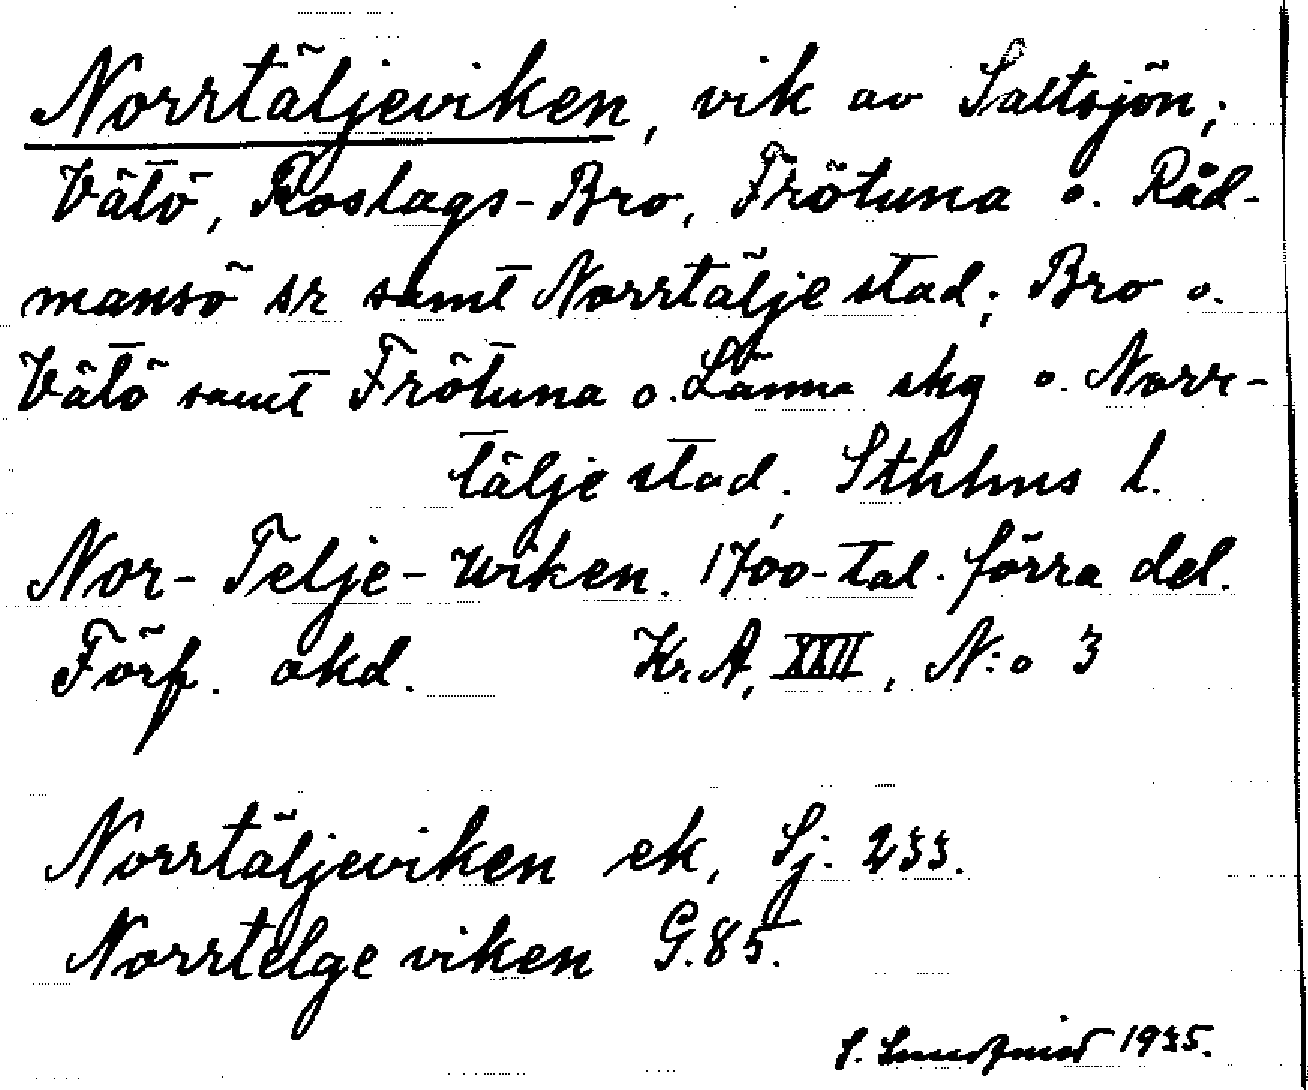 Norrtäljeviken, vik av Saltsjön;
Vätö, Roslags-Bro, Frötuna o. Råd-
mansö sr samt Norrtälje stad; Bro o.
Vätö samt Frötuna o. Länna skg o. Norr-
tälje stad; Sthlms l.
Nor-Telje-Wiken. 1700-tal. förra del.
Förf. okd. Kr. A, XXII, N:o 3
Norrtäljeviken ek, Sj. 233.
Norrtelge viken G. 85.
S. Lundqvist 1935.